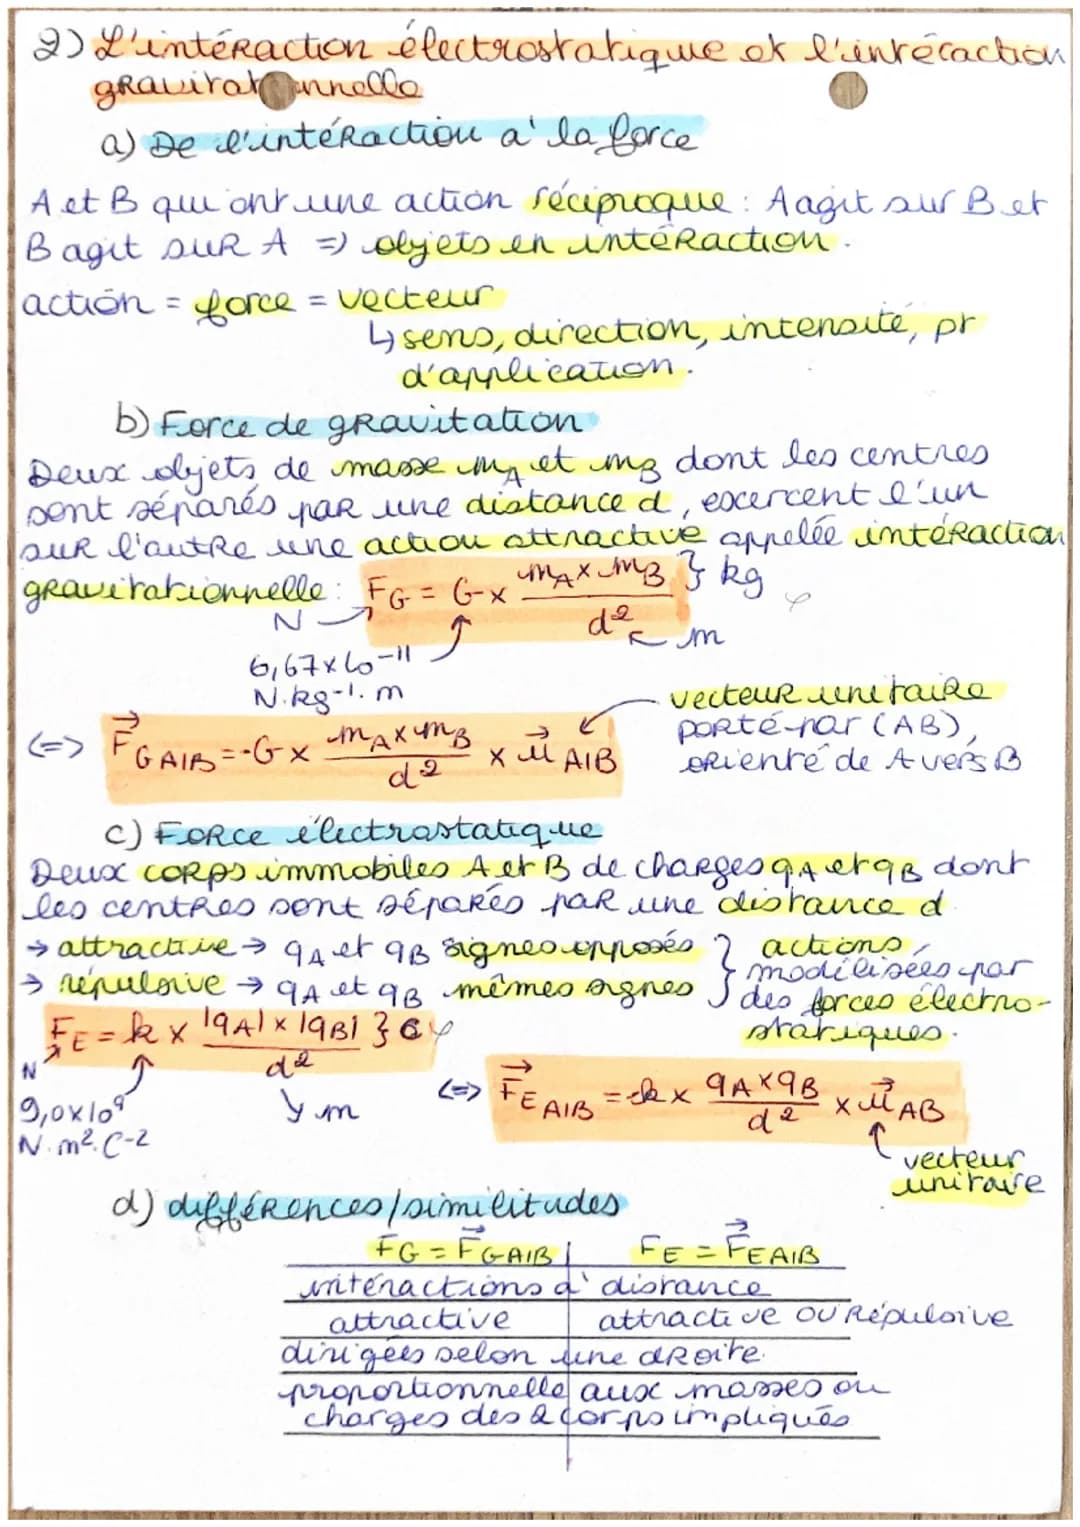 2) L'intéraction électrostatique et l'intéraction
gravitationnelle
a) De l'intéraction à la force
A et B qui ont une action réciproque : A agit sur B et
B agit sur A => objets en intéraction.
action = force = vecteur
↳ sens, direction, intensité, pt
d'application.
b) Force de gravitation
Deux objets de masse mA et mB dont les centres
sont séparés par une distance d, excercent l'un
sur l'autre une action attractive appelée intéraction
gravitationnelle : FG = G × (mA × mB)/d² } kg
N
m
6,67×10⁻¹¹
N.kg⁻¹.m
<=> F⃗G A/B = -G × (mA × mB)/d² × u⃗ A/B
vecteur unitaire
porté par (AB),
orienté de A vers B
c) Force électrostatique
Deux corps immobiles A et B de charges qA et qB dont
les centres sont séparés par une distance d
→ attractive → qA et qB signes opposés } actions
→ répulsive → qA et qB mêmes signes } modélisées par
des forces électro-
statiques.
FE = k × (|qA| × |qB|)/d² } C
N
m
9,0×10⁹
N.m².C⁻²
<=> F⃗E A/B = k × (qA × qB)/d² × u⃗ AB
vecteur
unitaire
d) différences/similitudes
FG = F⃗G A/B | FE = F⃗E A/B
intéractions à distance
attractive | attractive ou répulsive
dirigées selon une droite
proportionnelle aux masses ou
charges des 2 corps impliqués